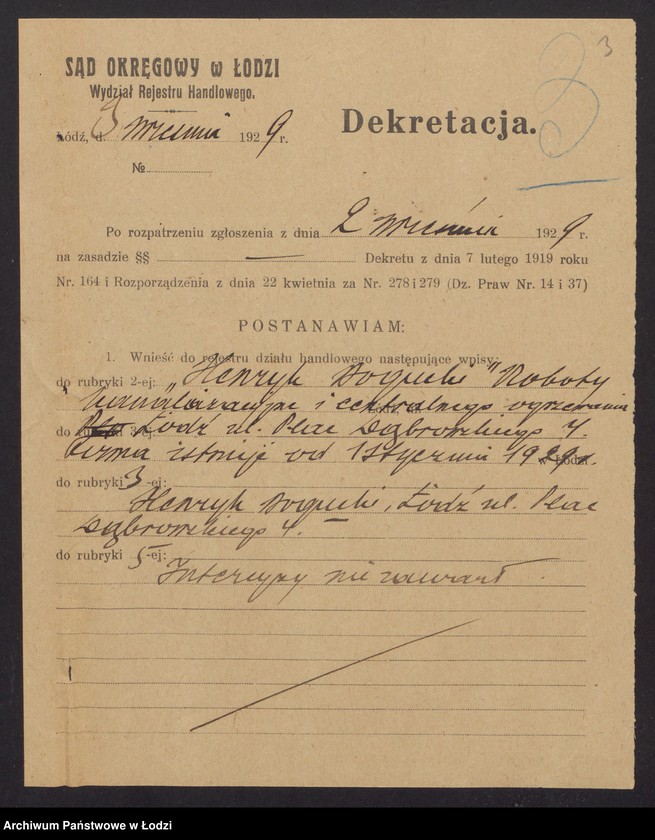 3
SĄD OKRĘGOWY w ŁODZI
Wydział Rejestru Handlowego.
Łódź, d. 3 września 1929 r.
Dekretacja.
№
Po rozpatrzeniu zgłoszenia z dnia 2 września 1929 r.
na zasadzie §§ — Dekretu z dnia 7 lutego 1919 roku
Nr. 164 i Rozporządzenia z dnia 22 kwietnia za Nr. 278 i 279 (Dz. Praw Nr. 14 i 37)
POSTANAWIAM:
1. Wnieść do rejestru działu handlowego następujące wpisy:
do rubryki 2-ej: „Henryk Bogucki" Roboty
kanalizacyjne i centralnego ogrzewania
do Łódź ul. Plac Dąbrowskiego 4.
Firma istnieje od 1 stycznia 1929 r.
do rubryki 3-ej:
Henryk Bogucki, Łódź ul. Plac
Dąbrowskiego 4. —
do rubryki 5-ej:
Intercyzy nie zawarł.
Archiwum Państwowe w Łodzi